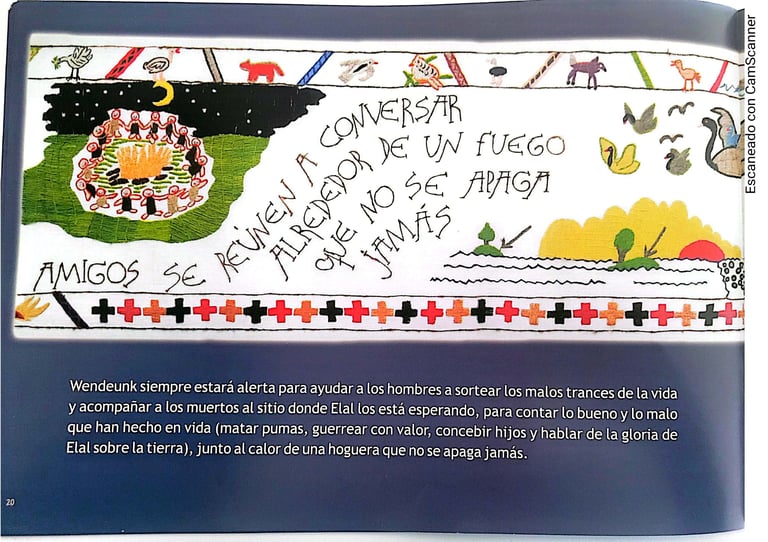 AMIGOS SE REÚNEN A CONVERSAR
ALREDEDOR DE UN FUEGO
QUE NO SE APAGA
JAMÁS
Wendeunk siempre estará alerta para ayudar a los hombres a sortear los malos trances de la vida
y acompañar a los muertos al sitio donde Elal los está esperando, para contar lo bueno y lo malo
que han hecho en vida (matar pumas, guerrear con valor, concebir hijos y hablar de la gloria de
Elal sobre la tierra), junto al calor de una hoguera que no se apaga jamás.
20
Escaneado con CamScanner